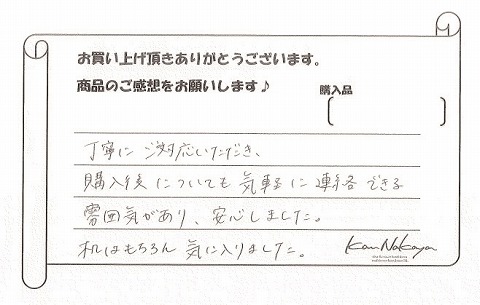 お買い上げ頂きありがとうございます。
商品のご感想をお願いします♪
購入品
丁寧に ご対応いただき、
購入後についても 気軽に連絡できる
雰囲気があり、安心しました。
机はもちろん 気に入りました。
Kan Nakaya